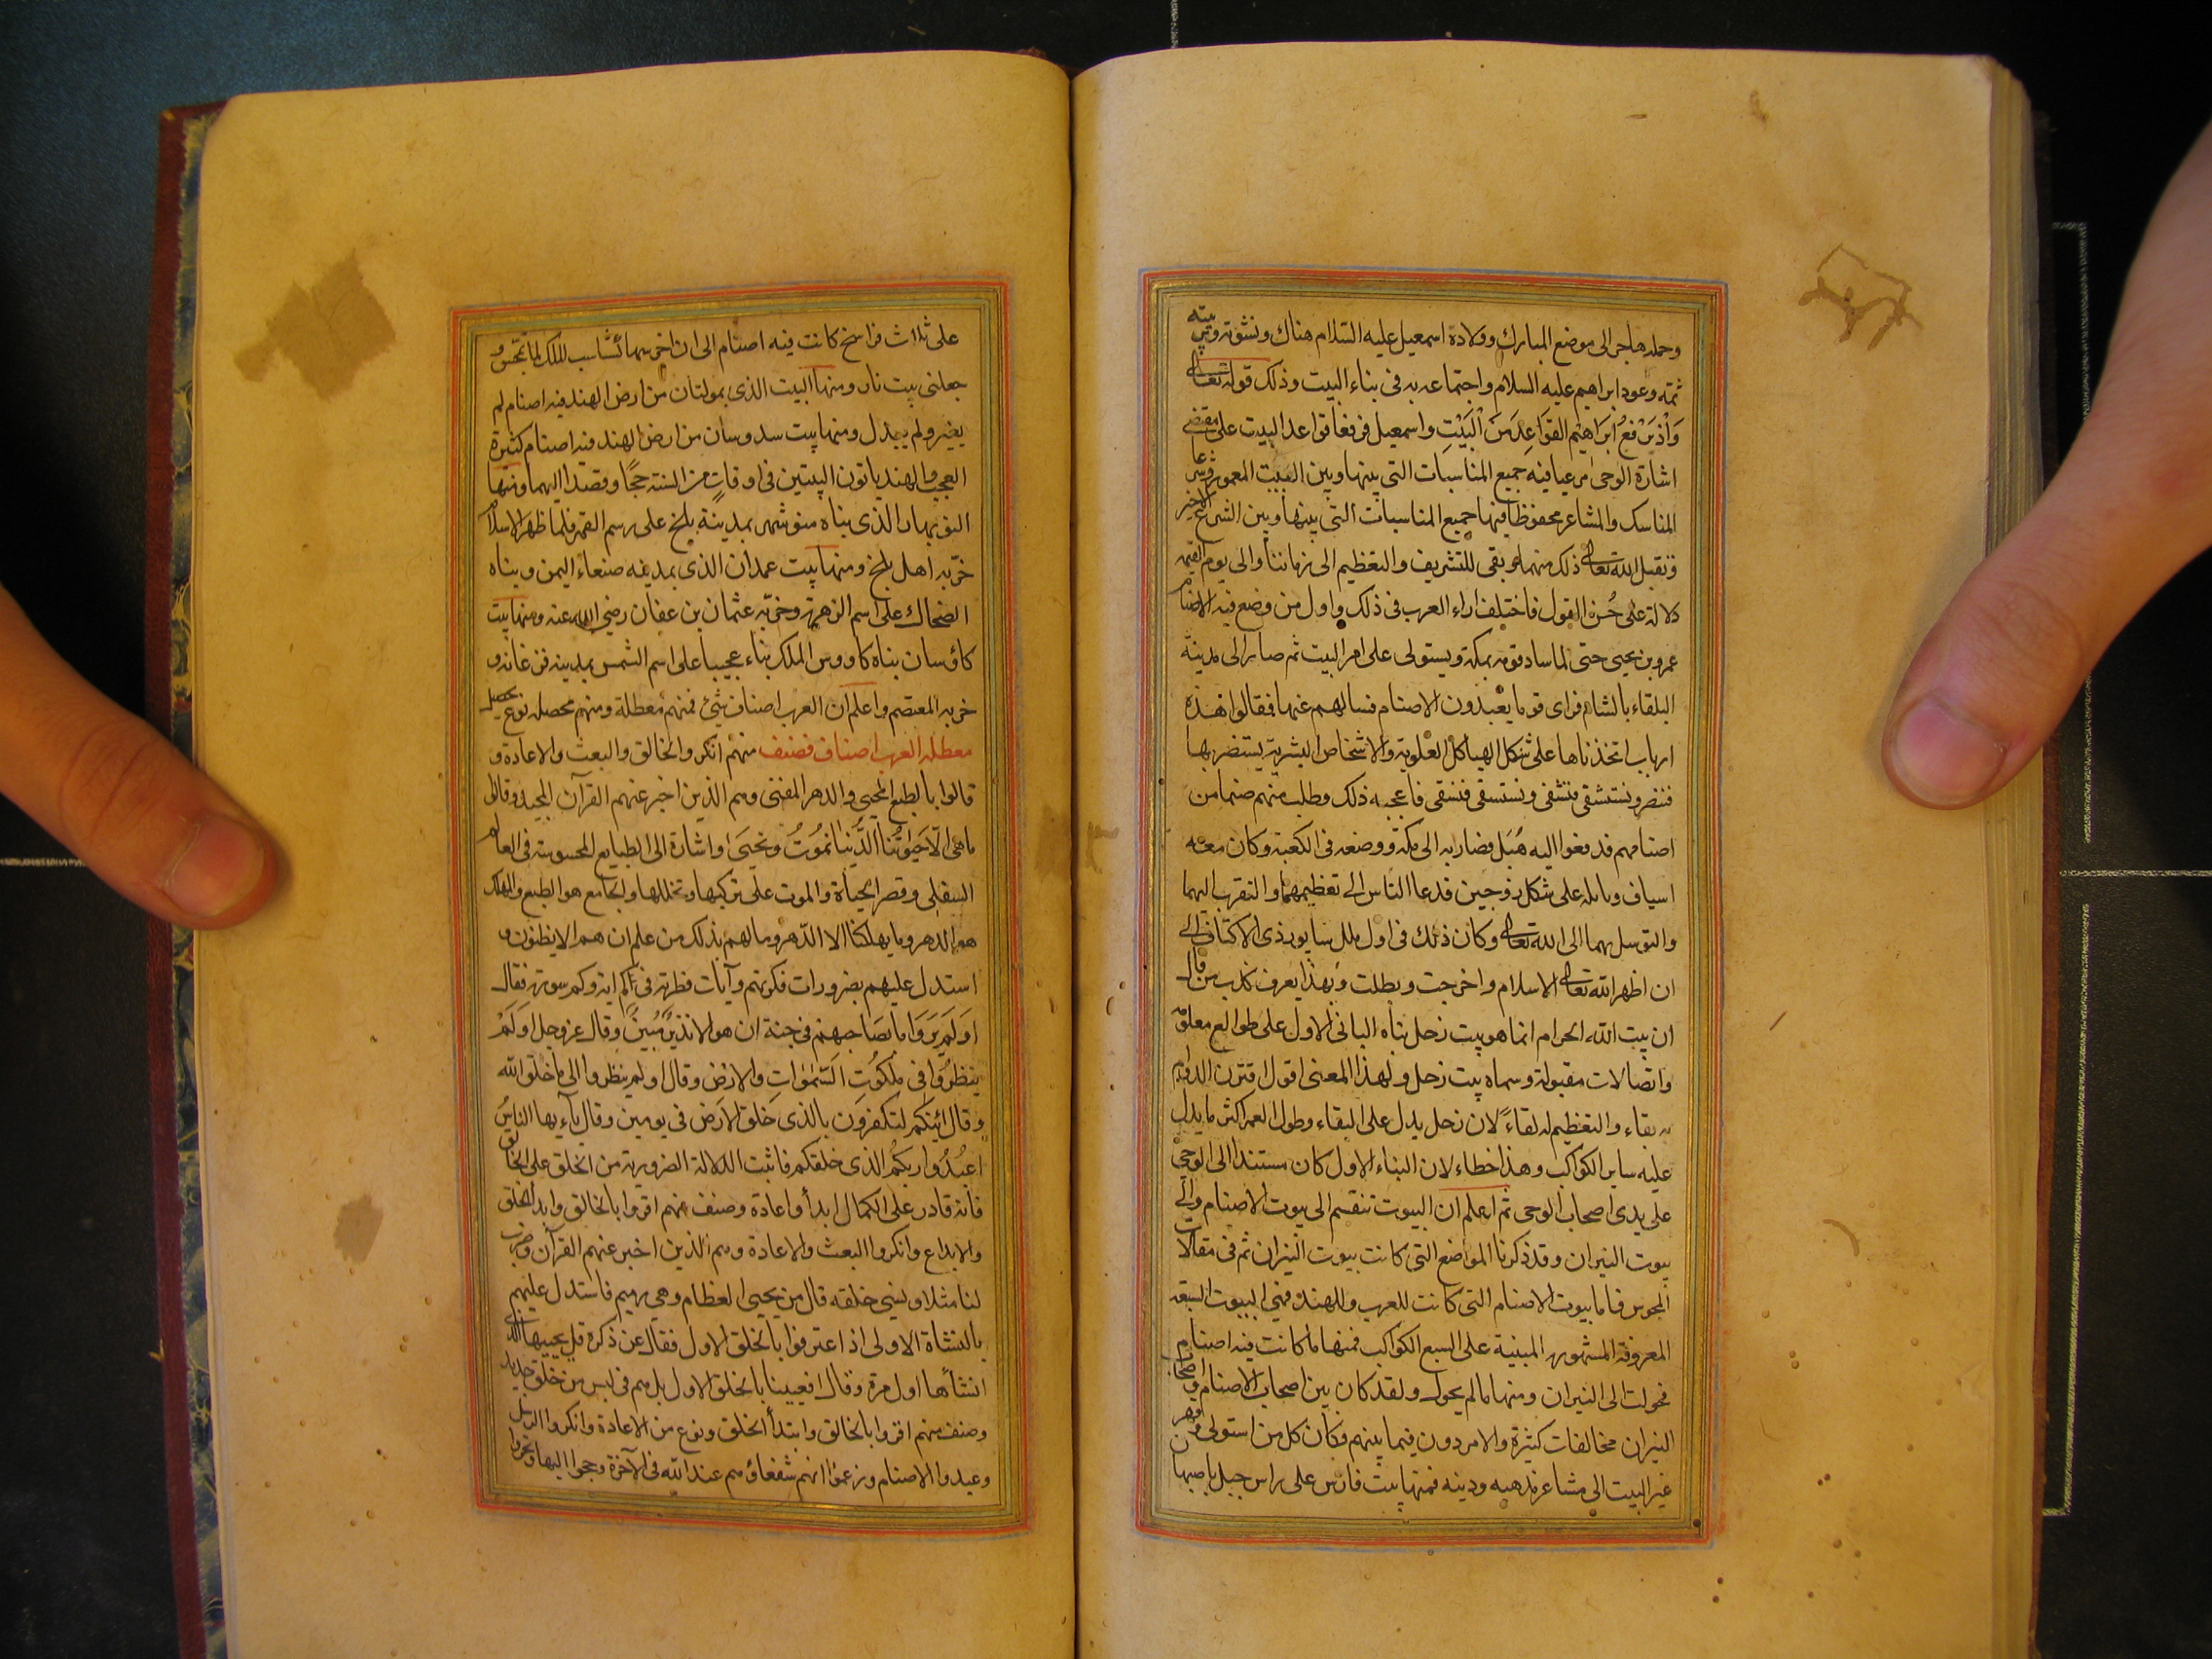 وحمله هاجر الى موضع المبارك وولادة اسمعيل عليه السلام هناك ونشوه وتربيته
ثمه وعود ابراهيم عليه السلام واجتماعه به فى بناء البيت وذلك قوله تعالى
وَاِذْ يَرْفَعُ اِبْرَاهِيْمُ القَوَاعِدَ مِنَ الْبَيْتِ واسمعيل فرفعا قواعد البيت على مقتضى
اشارة الوحى مرعيا فيه جميع المناسبات التى بينها وبين البيت المعمور وشرعا
المناسك والمشاعر محفوظا فيها جميع المناسبات التى بينها وبين الشرع الاخير
وتقبل الله تعالى ذلك منهما وبقى للتشريف والتعظيم الى زماننا والى يوم القيمه
دلالة على حُسن القبول فاختلف اراء العرب فى ذلك واول من وضع فيه الاصنام
عمرو بن يحيى حتى لما ساد قومه بمكة ويستولى على امر البيت ثم صار الى مدينة
البلقاء بالشام فراى قوما يعبدون الاصنام فسالهم عنها فقالوا هذه
ارباب اتخذناها على شكل الهياكل العلوية والاشخاص البشرية يستنصر بها
فننصر ونستشفى فنشفى ونستسقى فنسقى فاعجبه ذلك وطلب منهم صنما من
اصنامهم فدفعوا اليه هُبَل فصار به الى مكة ووضعه فى الكعبة وكان معه
اساف ونايله على شكل زوجين فدعا الناس الى تعظيمهما والتقرب اليهما
والتوسل بهما الى الله تعالى وكان ذلك فى اول ملك سابور ذى الاكتاف الى
ان اظهر الله تعالى الاسلام واخرجت وبطلت وبهذا يعرف كذب من قال
ان بيت الله الحرام انما هو بيت زحل بناه البانى الاول على طوالع معلومه
واتصالات مقبولة وسماه بيت زحل ولهذا المعنى اقول اقترن الدوام
به بقاء والتعظيم له لقاءً لان زحل يدل على البقاء وطول العمر اكثر ما يدل
عليه ساير الكواكب وهذا خطاء لان البناء الاول كان مستندا الى الوحى
على يدى اصحاب الوحى ثم اعلم ان البيوت تنقسم الى بيوت الاصنام والى
بيوت النيران وقد ذكرنا المواضع التى كانت بيوت النيران ثم فى مقالات
المجوس فاما بيوت الاصنام التى كانت للعرب وللهند فهى البيوت السبعه
المعروفة المشهوره المبنية على السبع الكواكب فمنها ما كانت فيه اصنام
فحولت الى النيران ومنها ما لم يحول ولقد كان بين اصحاب الاصنام واصحاب
النيران مخالفات كثيرة والامر دون فيما بينهم فكان كل من استولى وقهر
غير البيت الى مشاعر مذهبه ودينه فمنها بيت فارس على راس جبل باصبهان
على ثلاث فراسخ كانت فيه اصنام الى ان اخرجها كشتاسب الملك لما تمجس و
جعلنى بيت نار ومنها البيت الذى بمولتان من ارض الهند فيه اصنام لم
يغير ولم يبدل ومنها بيت سدوسان من ارض الهند فيه اصنام كثيرة
العجيب والهند ياتون البيتين فى اوقاتٍ من السنة حجًا وقصدا اليهما ومنها
النوبهار الذى بناه منوشهر بمدينة بلخ على رسم القمر فلما ظهر الاسلام
خربه اهل بلخ ومنها بيت عمدان الذى بمدينه صنعاء اليمن وبناه
الضحاك على اسم الزهرة وخربه عثمان بن عفان رضى الله عنه ومنها بيت
كاوسان بناه كاووس الملك بناء عجيبا على اسم الشمس بمدينه فرغانه و
خربه المعتصم واعلم ان العرب اصناف شتى فمنهم معطلة ومنهم محصله نوع تحصيل
معطله العرب اصناف فصنف منهم انكروا الخالق والبعث والاعادة و
قالوا بالطبع المحيى والدهر المفنى وهم الذين اخبر عنهم القرآن المجيد وقالوا
ما هى الّا حَيٰوتُنا الدُّنيا نَمُوتُ ونَحيىَ اواشارة الى الطبايع المحسوسة فى العالم
السفلى وقصر الحياة والموت على تركبها وتحللها والجامع هو الطبع والمهلك
هو الدهر وما يهلكنا الا الدّهر وما لهم بذلك من علم ان هم الا يظنون و
استدل عليهم بضرورات فكرتهم وآيات فطرته فى كم اية وكم سورة فقال
اَوَلَم يَرَوا ما بصَاحِبهِم من جِنة ان هو الا نذيْرٌ مُبينٌ وقال عز وجل اوَلَمْ
ينظُرُوا فى ملكوُتِ السَّمٰواتِ والارْض وقال اولم ينظروا الى ما خلق الله
وقال ائنكم لتكفرون بالذى خلق الارض فى يومين وقال يآءيها الناسُ
اعبُدُوا ربكمُ الذى خلقكم فاثبت الدلالة الضرورية من الخلق على الخالق
فانه قادر على الكمال ابدأ واعادة وصنف منهم اقروا بالخالق وابتدأ الخلق
والابداع وانكروا البعث والاعادة وهم الذين اخبر عنهم القرآن وضرب
لنا مثلا ونسى خلقه قال من يحيى العظام وهى رميم فاستدل عليهم
بالنشاة الاولى اذ اعترفوا بالخلق الاول فقال عن ذكره قل يحييها الذى
انشأها اول مرة وقال افعيينا بالخلق الاول بل هم فى لبس من خلق جديد
وصنف منهم اقروا بالخالق وابتدأ الخلق ونوع من الاعادة وانكروا الرسل
وعبدوا الاصنام وزعموا انهم شفعاؤهم عند الله فى الآخرة وحجوا اليها ونحروا